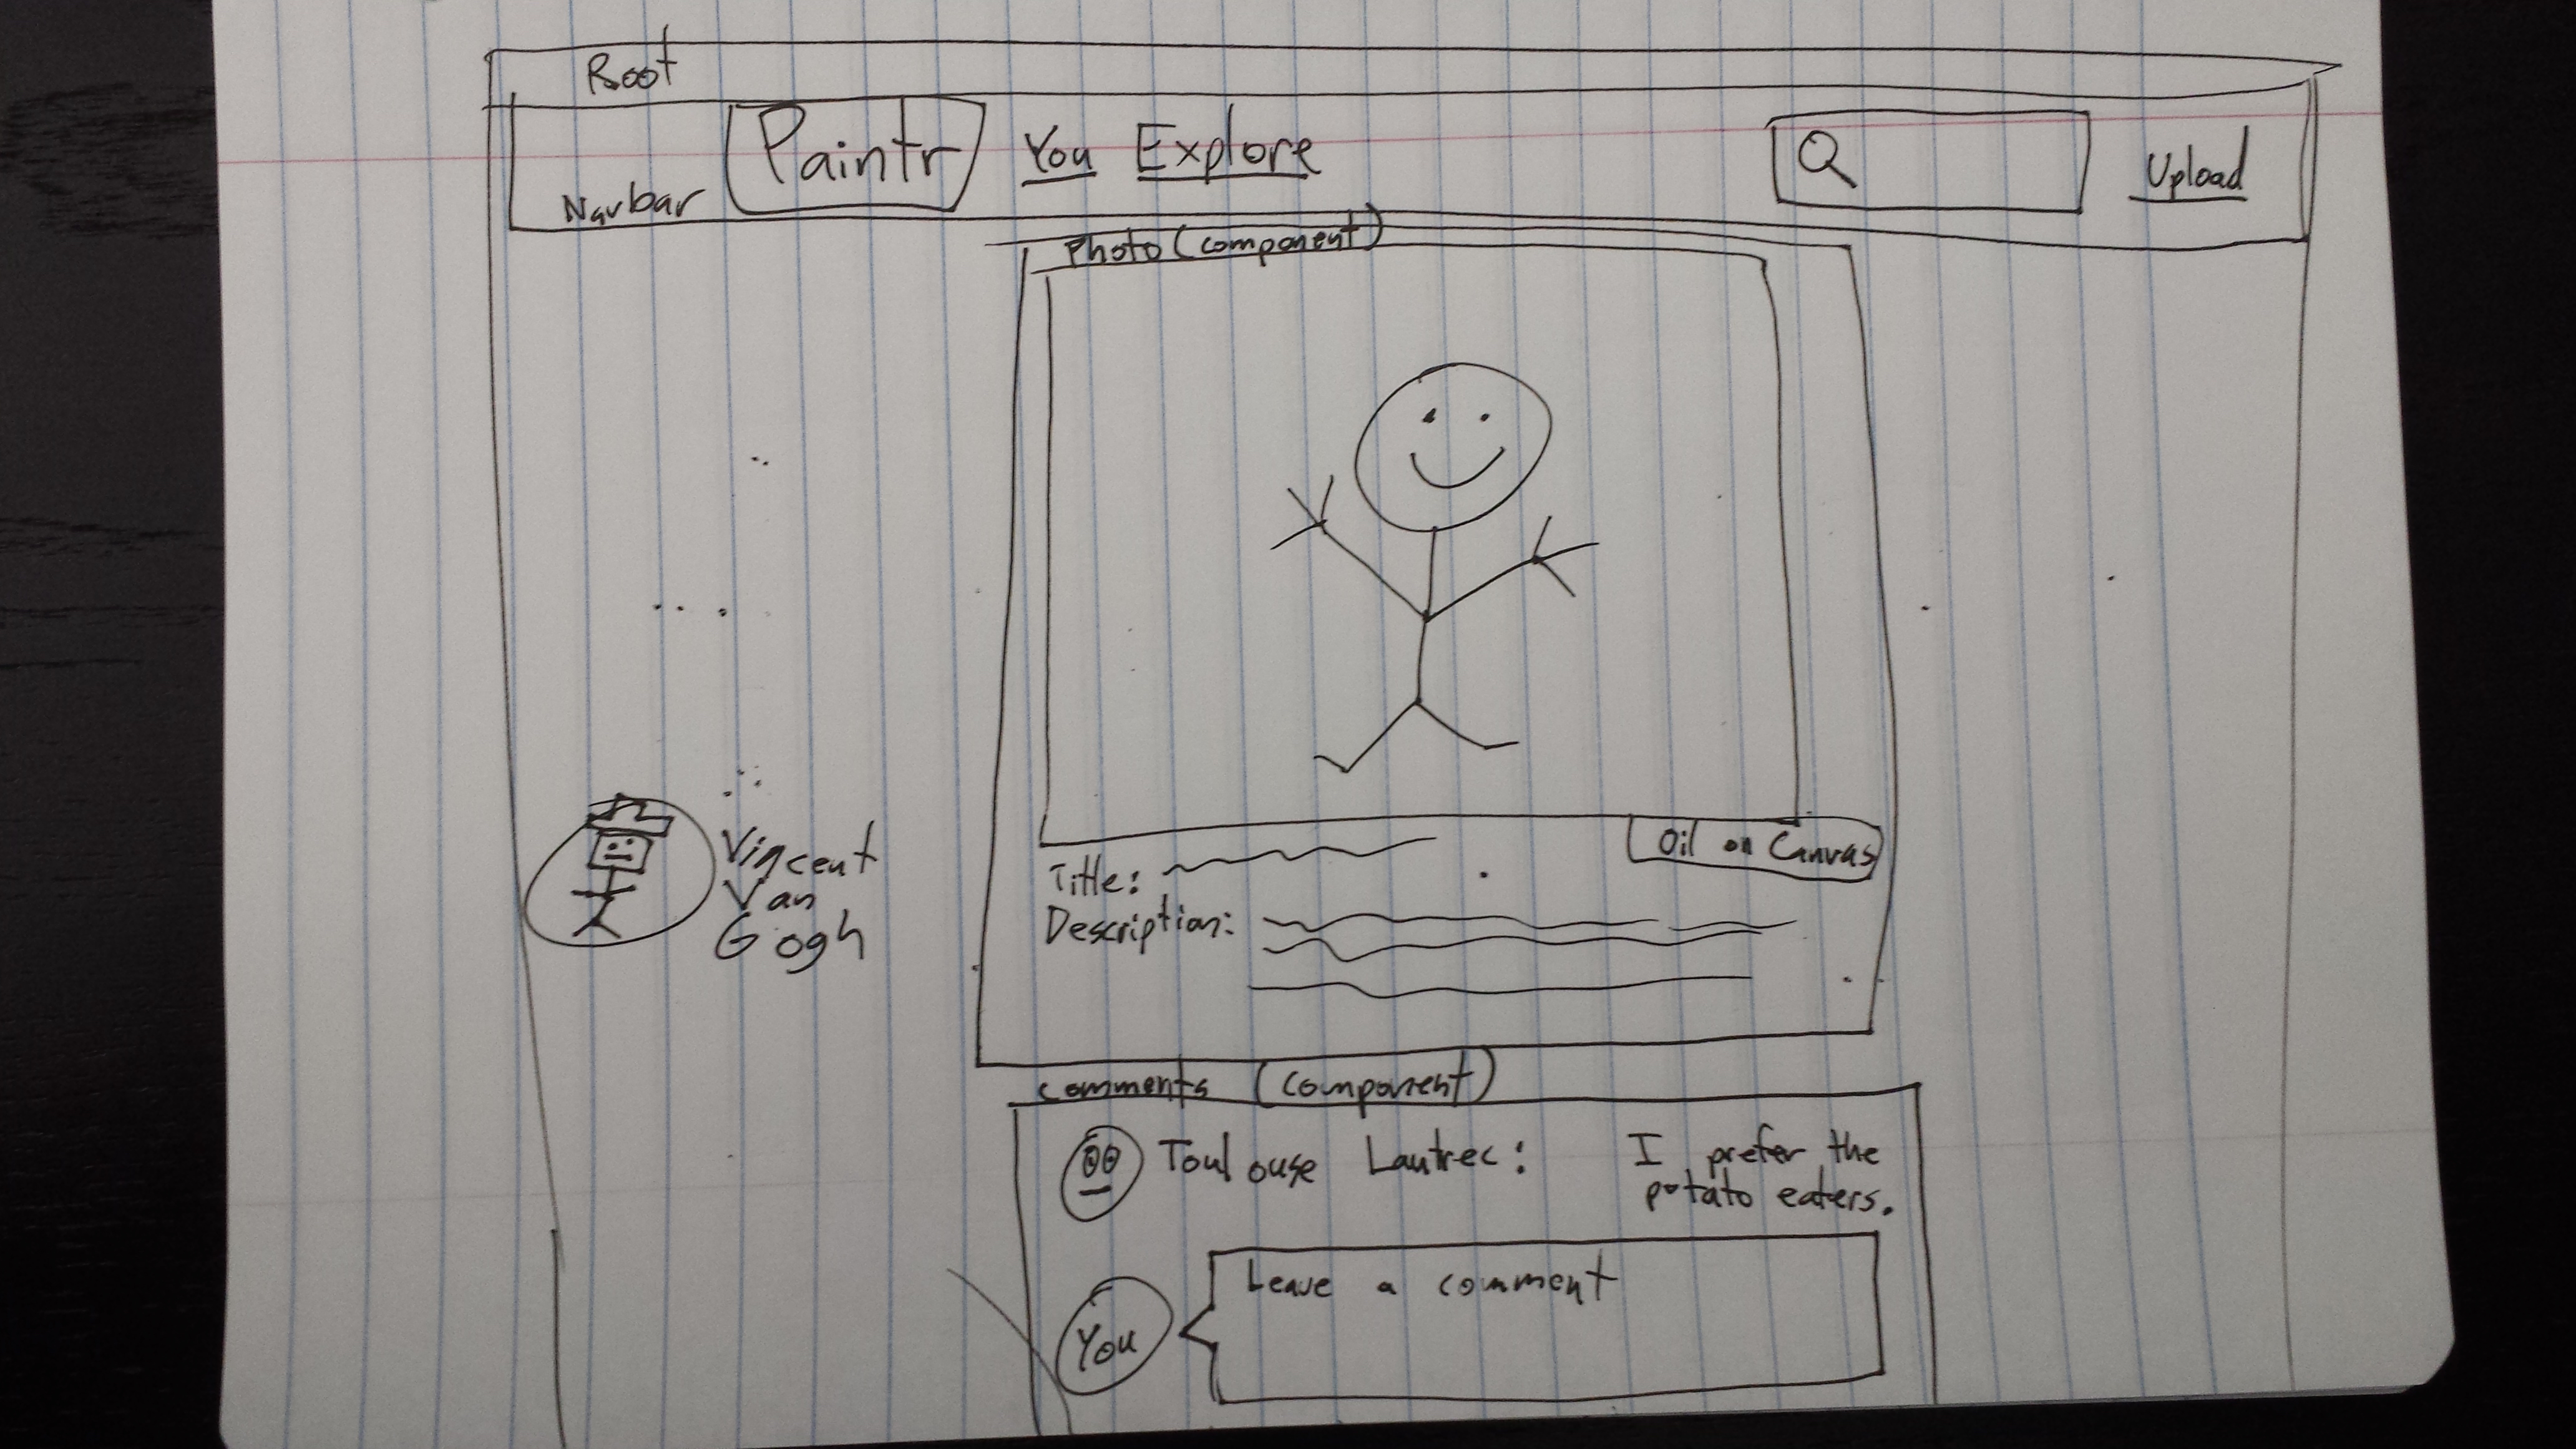 Root
Navbar
Paintr
You Explore
Upload
Photo (component)
Vincent
Van
Gogh
Oil on Canvas
Title:
Description:
comments (component)
Toulouse Lautrec: I prefer the
potato eaters.
You
Leave a comment